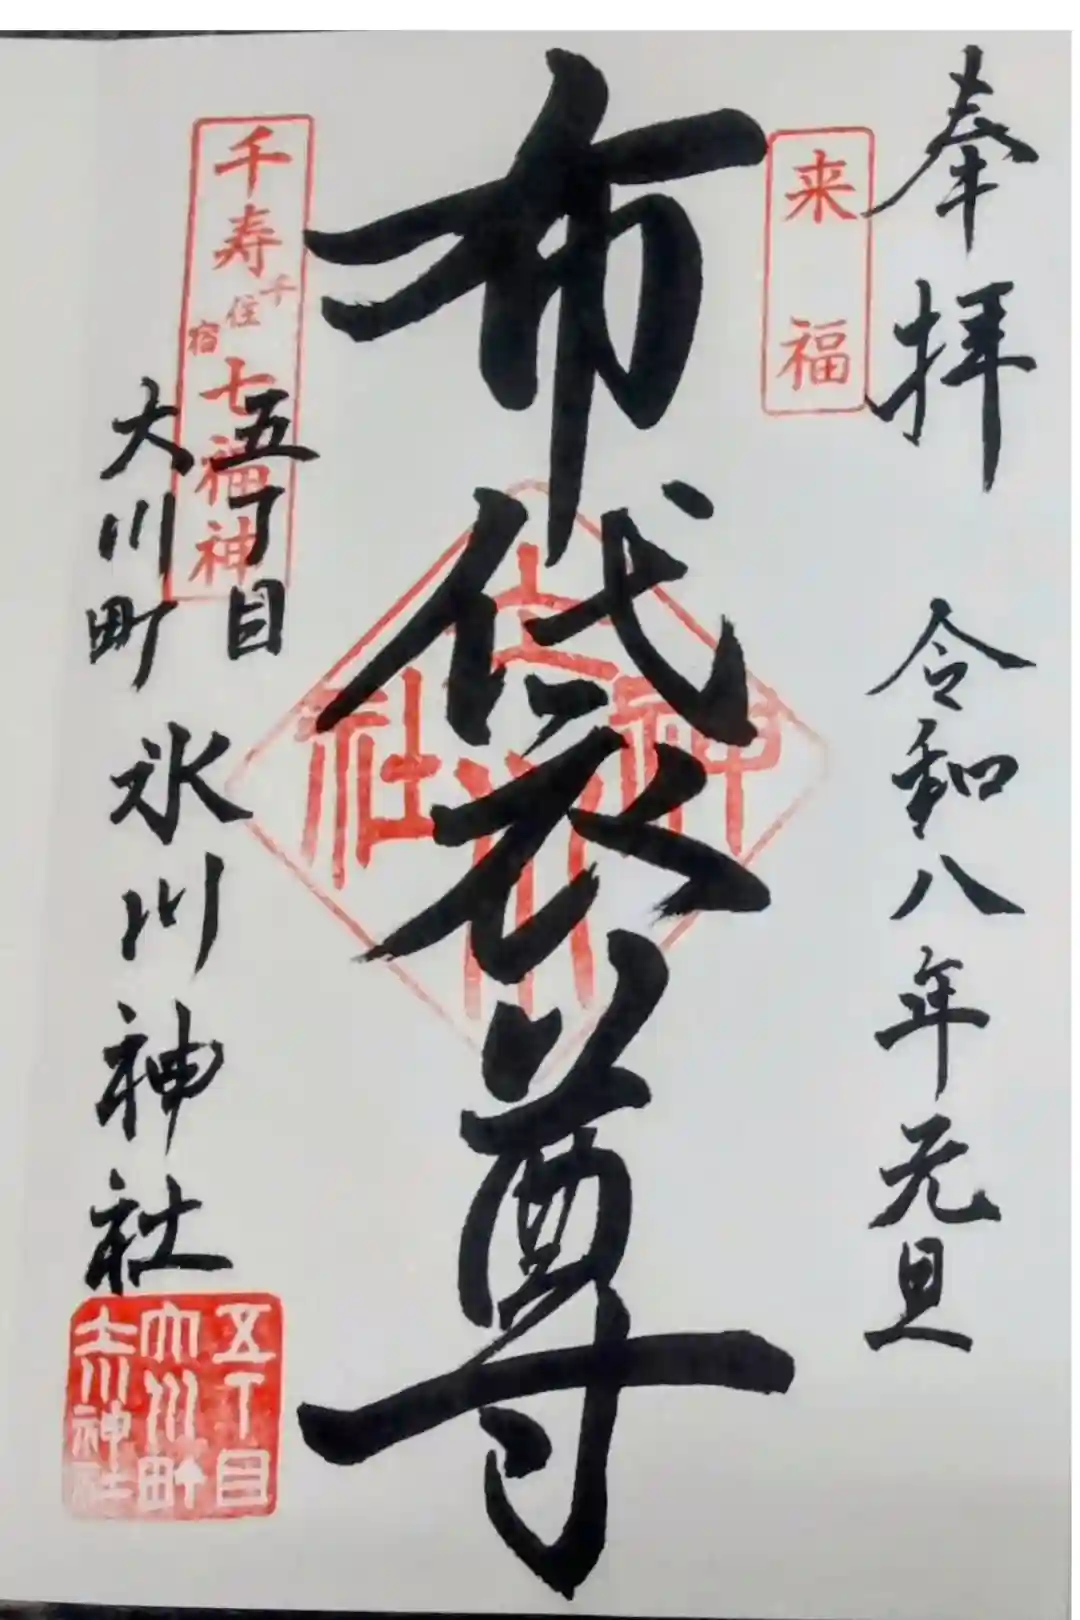 奉拝 令和八年元旦
来福
布袋尊
千寿千住宿七福神
五丁目
大川町 氷川神社
神
社
五丁目
大川町
氷川神社